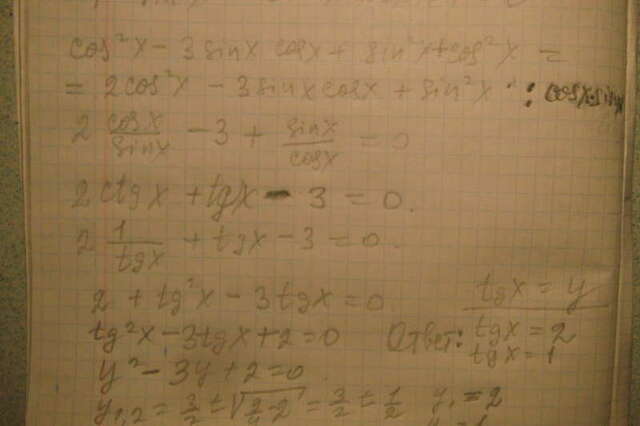 cos²x - 3 sinx cosx + sin²x + cos²x =
= 2cos²x - 3sinx cosx + sin²x : cosx·sinx
2 cosx/sinx - 3 + sinx/cosx = 0
2ctgx + tgx - 3 = 0.
2 1/tgx + tgx - 3 = 0.
2 + tg²x - 3tgx = 0
tgx = y
tg²x - 3tgx + 2 = 0
Ответ: tgx = 2
tgx = 1
y² - 3y + 2 = 0.
y₁,₂ = 3/2 ± √ = 3/2 ± 1/2 y₁ = 2